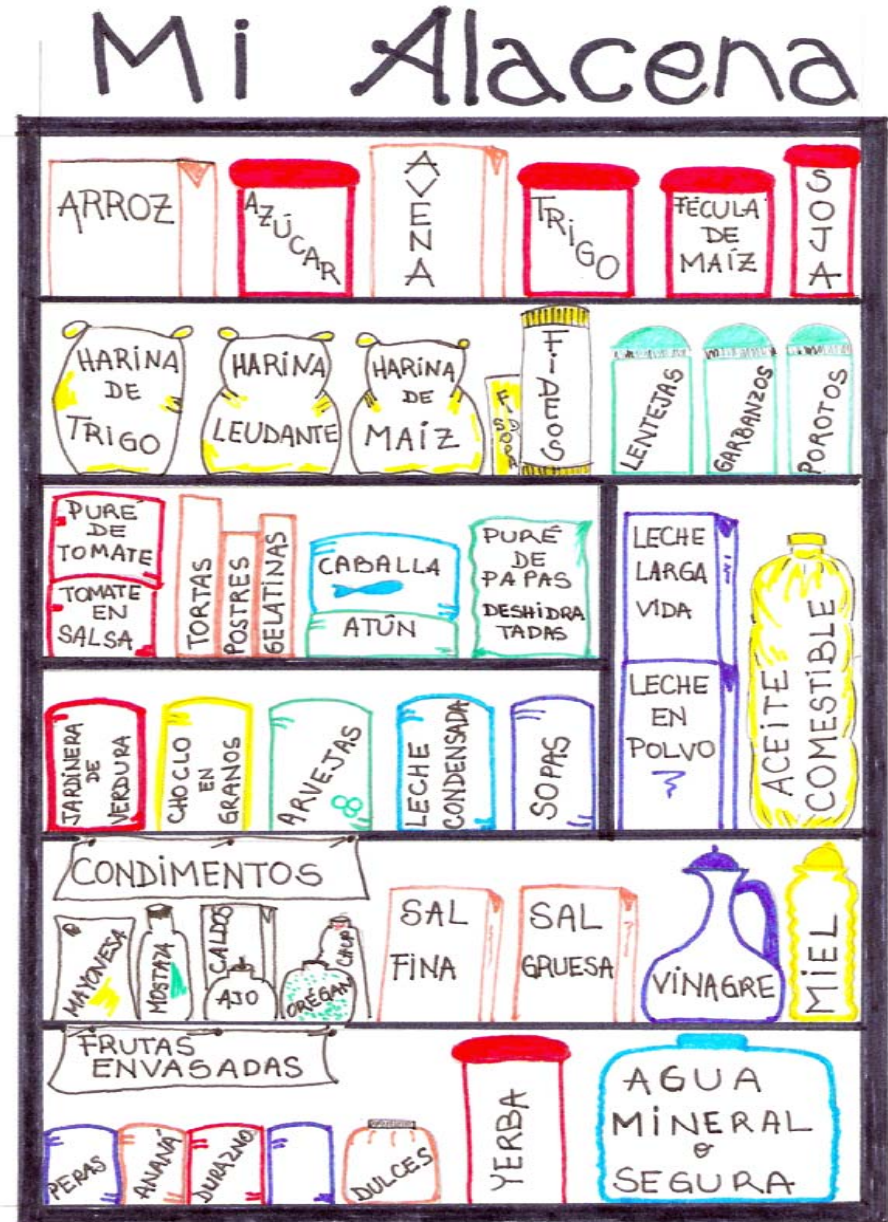 Mi Alacena
ARROZ
AZÚCAR
AVENA
TRIGO
FÉCULA
DE
MAÍZ
SOJA
HARINA
DE
TRIGO
HARINA
LEUDANTE
HARINA
DE
MAÍZ
FIDEOS
LENTEJAS
GARBANZOS
POROTOS
PURÉ
DE
TOMATE
TOMATE
EN
SALSA
TORTAS
POSTRES
GELATINAS
CABALLA
ATÚN
PURÉ
DE
PAPAS
DESHIDRA
TADAS
LECHE
LARGA
VIDA
LECHE
EN
POLVO
ACEITE
COMESTIBLE
JARDINERA
DE
VERDURA
CHOCLO
EN
GRANOS
ARVEJAS
LECHE
CONDENSADA
SOPAS
CONDIMENTOS
MAYONESA
MOSTAZA
CALDOS
AJO
ORÉGAN
SAL
FINA
SAL
GRUESA
VINAGRE
MIEL
FRUTAS
ENVASADAS
PERAS
ANANÁ
DURAZNO
DULCES
YERBA
AGUA
MINERAL
o
SEGURA